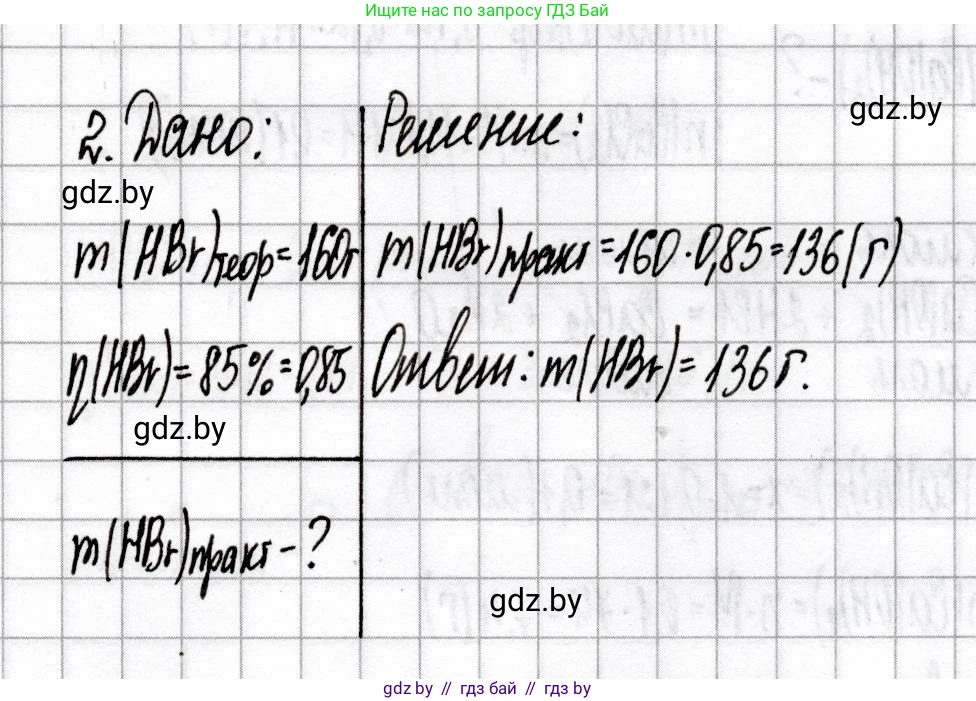 Ищите нас по запросу ГДЗ Бай
gdz.by
2. Дано:
Решение:
gdz.by
m(HBr)теор=160г
m(HBr)практ=160·0,85=136(г)
η(HBr)=85%=0,85
Ответ: m(HBr)=136г.
gdz.by
m(HBr)практ-?
gdz.by
gdz.by // гдз бай // gdz.by